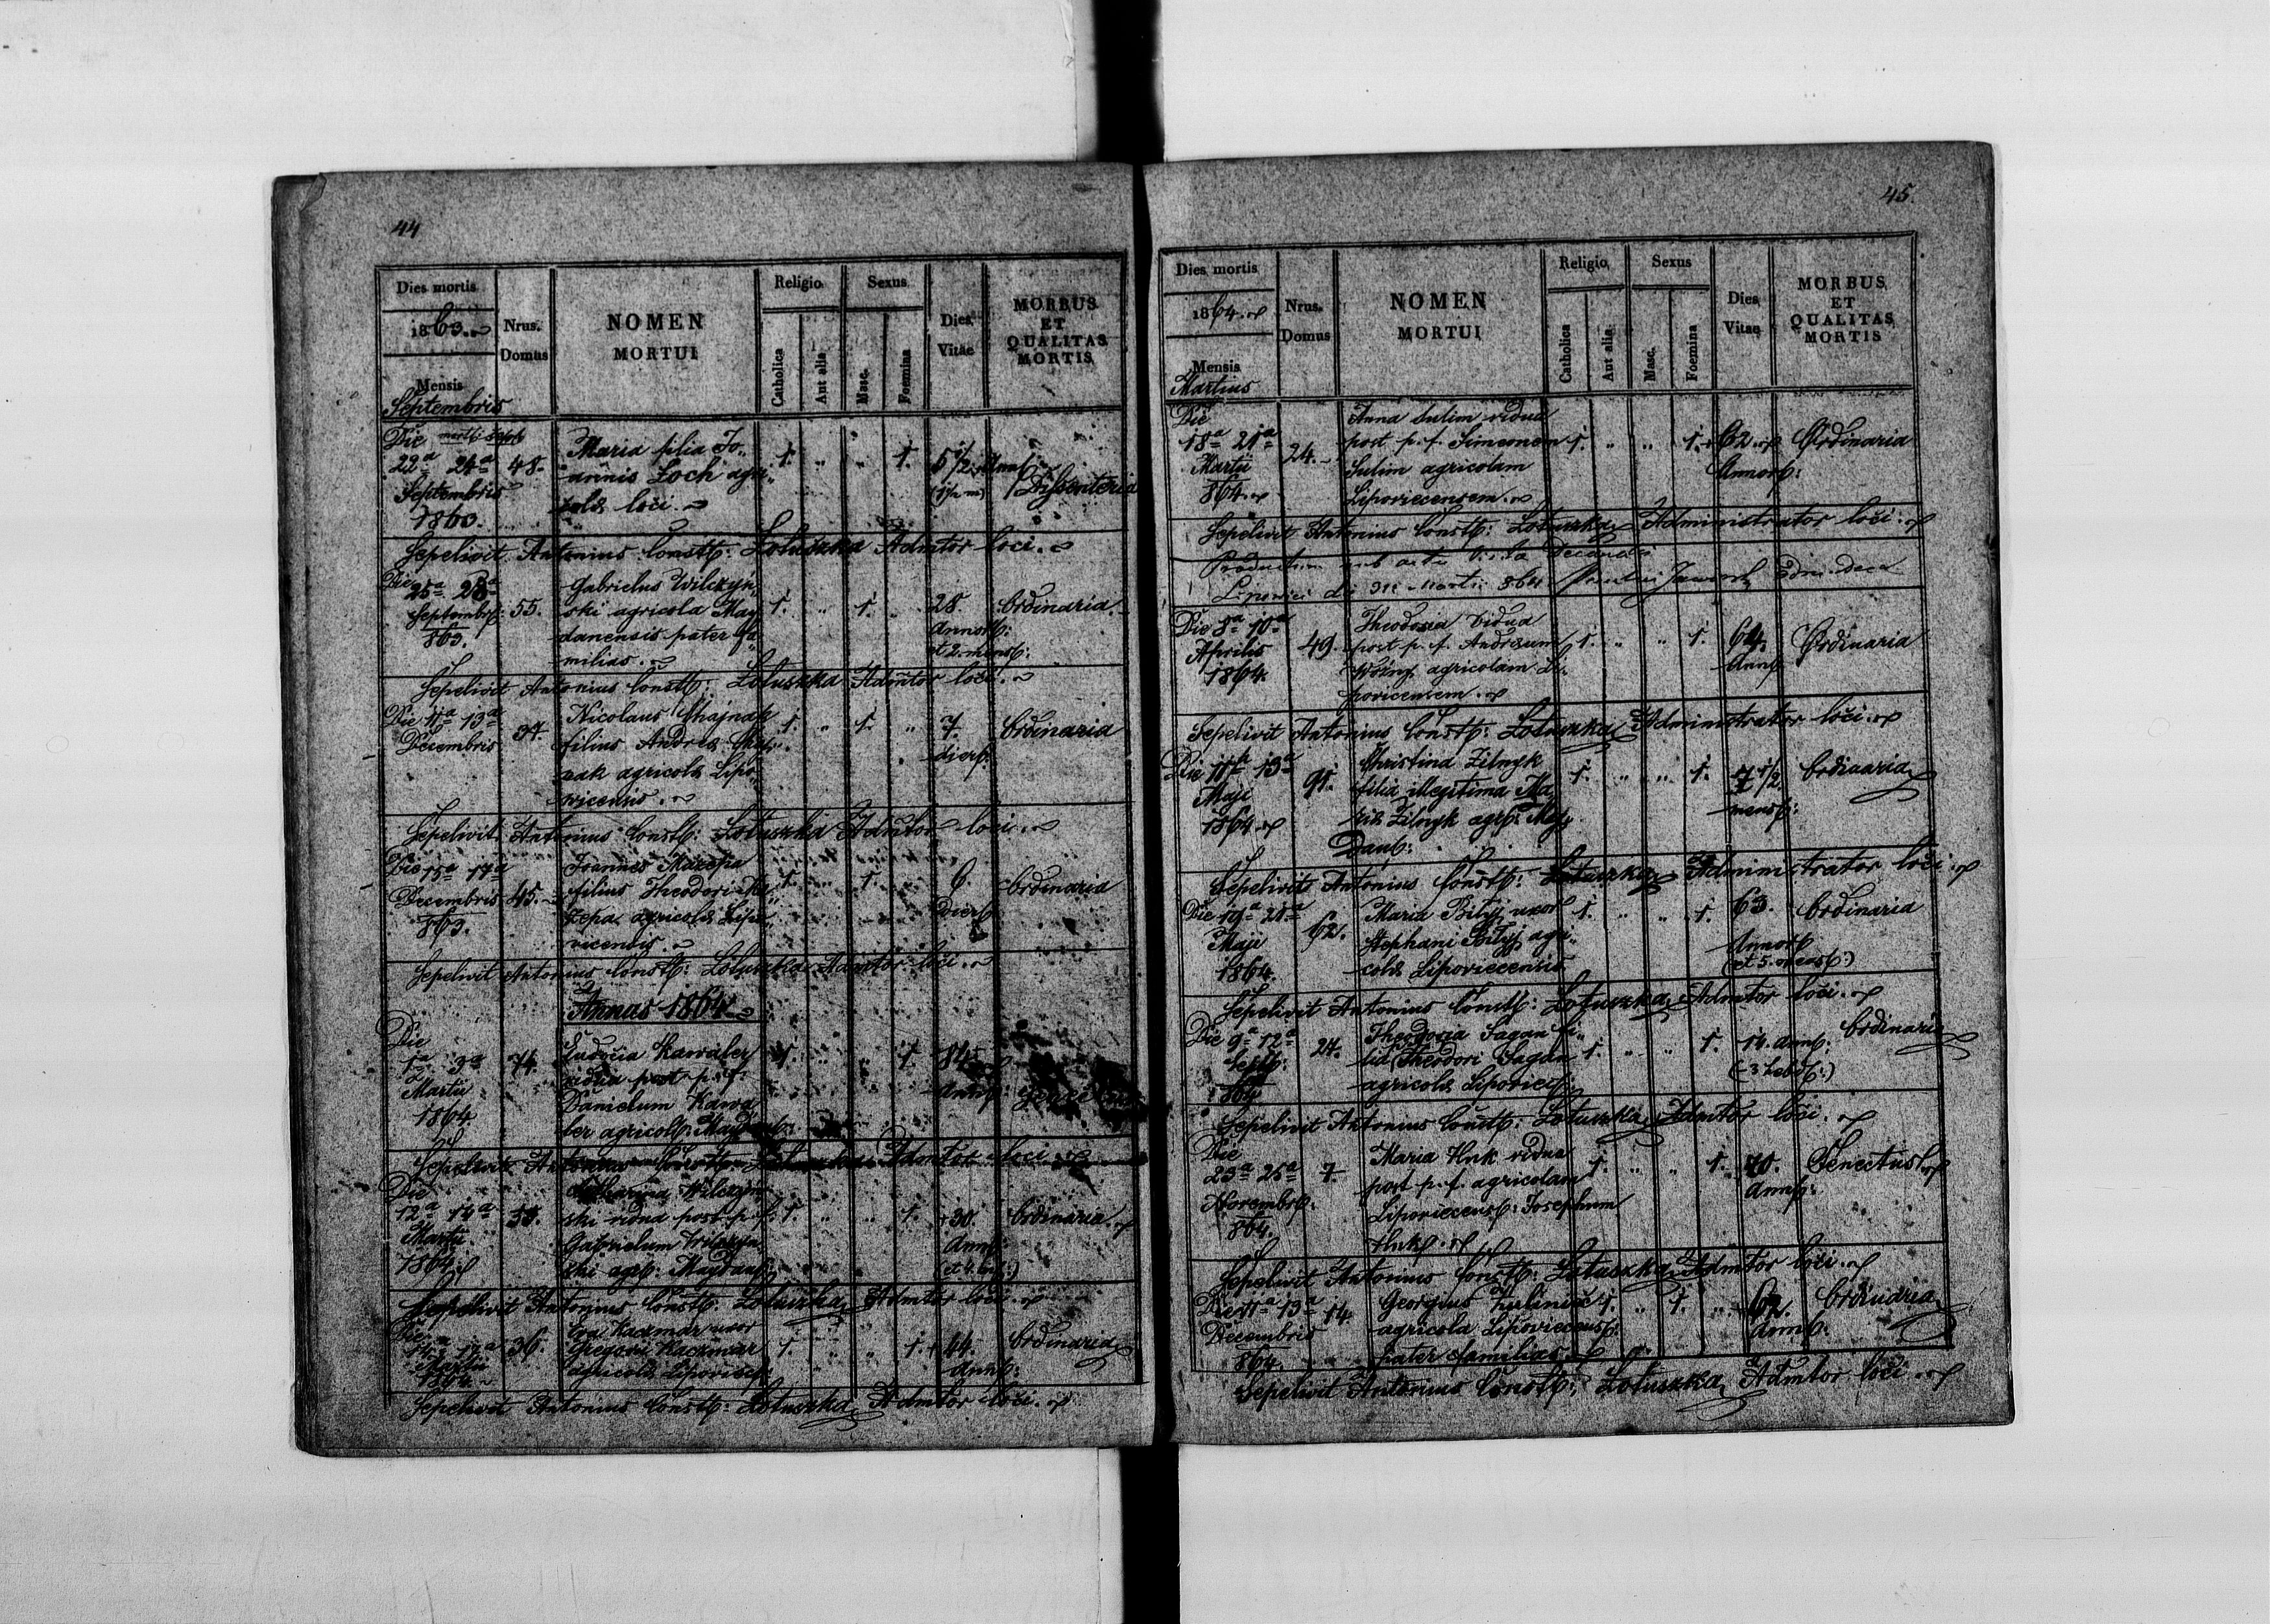 44
Dies mortis
1863.
Mensis
Septembris
Nrus.
Domus
NOMEN
MORTUI
Religio
Catholica
Aut alia
Sexus
Masc.
Foemina
Dies
Vitae
MORBUS
ET
QUALITAS
MORTIS
Die
22a 24a
Septembris
1863.
48.
Maria filia Jo-
annis Loch agri-
colæ loci.
1. " " 1.
5 1/2
Dissenteria
Sepelivit Antonius Constt: Lotuszka Admtor loci.
Die
25a 28a
Septembr:
863.
55.
Gabrielus Wilczyń-
ski agricola May-
danensis pater fa-
milias.
1. " 1. "
28.
Annor:
et 2. mens:
Ordinaria
Sepelivit Antonius Constt: Lotuszka Admtor loci.
Die 11a 13a
Decembris
37.
Nicolaus Chajnak
filius Andreæ Chaj-
nak agricolæ Lipo-
viecensis.
1. " 1. "
7.
dier:
Ordinaria
Sepelivit Antonius Constt: Lotuszka Admtor loci.
Die 15a 17a
Decembris
863.
45.
Joannes Mazepa
filius Theodori Ma-
zepa agricolæ Lipo-
vecensis.
1. " 1. "
6.
dier:
Ordinaria
Sepelivit Antonius Constt: Lotuszka Admtor loci.
Annus 1864
Die
1a 3a
Martii
1864.
74.
Eudocia Kawaler
vidua post p. f.
Danielum Kawa-
ler agricol: Maydan:
1. " " 1.
84.
Ann:
Sepelivit Antonius Constt: Lotuszka Admtor loci.
Die
12a 14a
Martii
1864.
55.
Catharina Wilczyń-
ski vidua post p. f.
Gabrielum Wilczyń-
ski agr: Maydan:
1. " " 1.
30.
Ann:
Ordinaria.
Sepelivit Antonius Constt: Lotuszka Admtor loci.
Die
Martii
1864.
36.
Eva Kaczmar uxor
Gregorii Kaczmar
agricolæ Lipoviec:
1. " " 1.
44.
Ann:
Ordinaria
Sepelivit Antonius Constt: Lotuszka Admtor loci.
45.
Dies mortis
1864.
Mensis
Martius
Nrus.
Domus
NOMEN
MORTUI
Religio
Catholica
Aut alia
Sexus
Masc.
Foemina
Dies
Vitae
MORBUS
ET
QUALITAS
MORTIS
Die
18a 21a
Martii
864.
24.
Anna Sulim vidua
post p. f. Simeonem
Sulim agricolam
Lipoviecensem.
1. " " 1.
62.
Annor:
Ordinaria
Sepelivit Antonius Constt: Lotuszka Administrator loci.
Martii 864
Die 8a 10a
Aprilis
1864.
49.
Theodosia vidua
post p. f. Andream
agricolam Li-
povicensem.
1. " " 1.
64.
Ann:
Ordinaria
Sepelivit Antonius Constt: Lotuszka Administrator loci.
Die 11a 13a
Maji
1864
91.
Christina Zilnyk
filia illegitima Ma-
riæ Zilnyk agr: May-
Dan:
1. " " 1.
7 1/2.
mens:
Ordinaria
Sepelivit Antonius Constt: Lotuszka Administrator loci.
Die 19a 21a
Maji
1864.
62.
Maria Bilyj uxor
Stephani Bilyj agri-
colæ Lipoviecensis
1. " " 1.
63.
Annor:
(et 5. mens:)
Ordinaria
Sepelivit Antonius Constt: Lotuszka Admtor loci.
Die 9a 12a
Septb:
864
27.
Theodozia Sagan fi-
lia Theodori Sagan
agricolæ Lipoviec:
1. " " 1.
14. ann:
(-3 hebd:)
Ordinaria
Sepelivit Antonius Constt: Lotuszka Admtor loci.
Die
23a 25a
Novembr:
864.
7.
Maria Hnk vidua
post p. f. agricolam
Lipoviecens: Josephum
Hnk.
1. " " 1.
70.
Ann:
Senectus
Sepelivit Antonius Constt: Lotuszka Admtor loci.
Die 11a 13a
Decembris
864.
14.
Georgius
agricola Lipoviecens:
pater familias.
1. " 1. "
62.
Ann:
Ordinaria
Sepelivit Antonius Constt: Lotuszka Admtor loci.